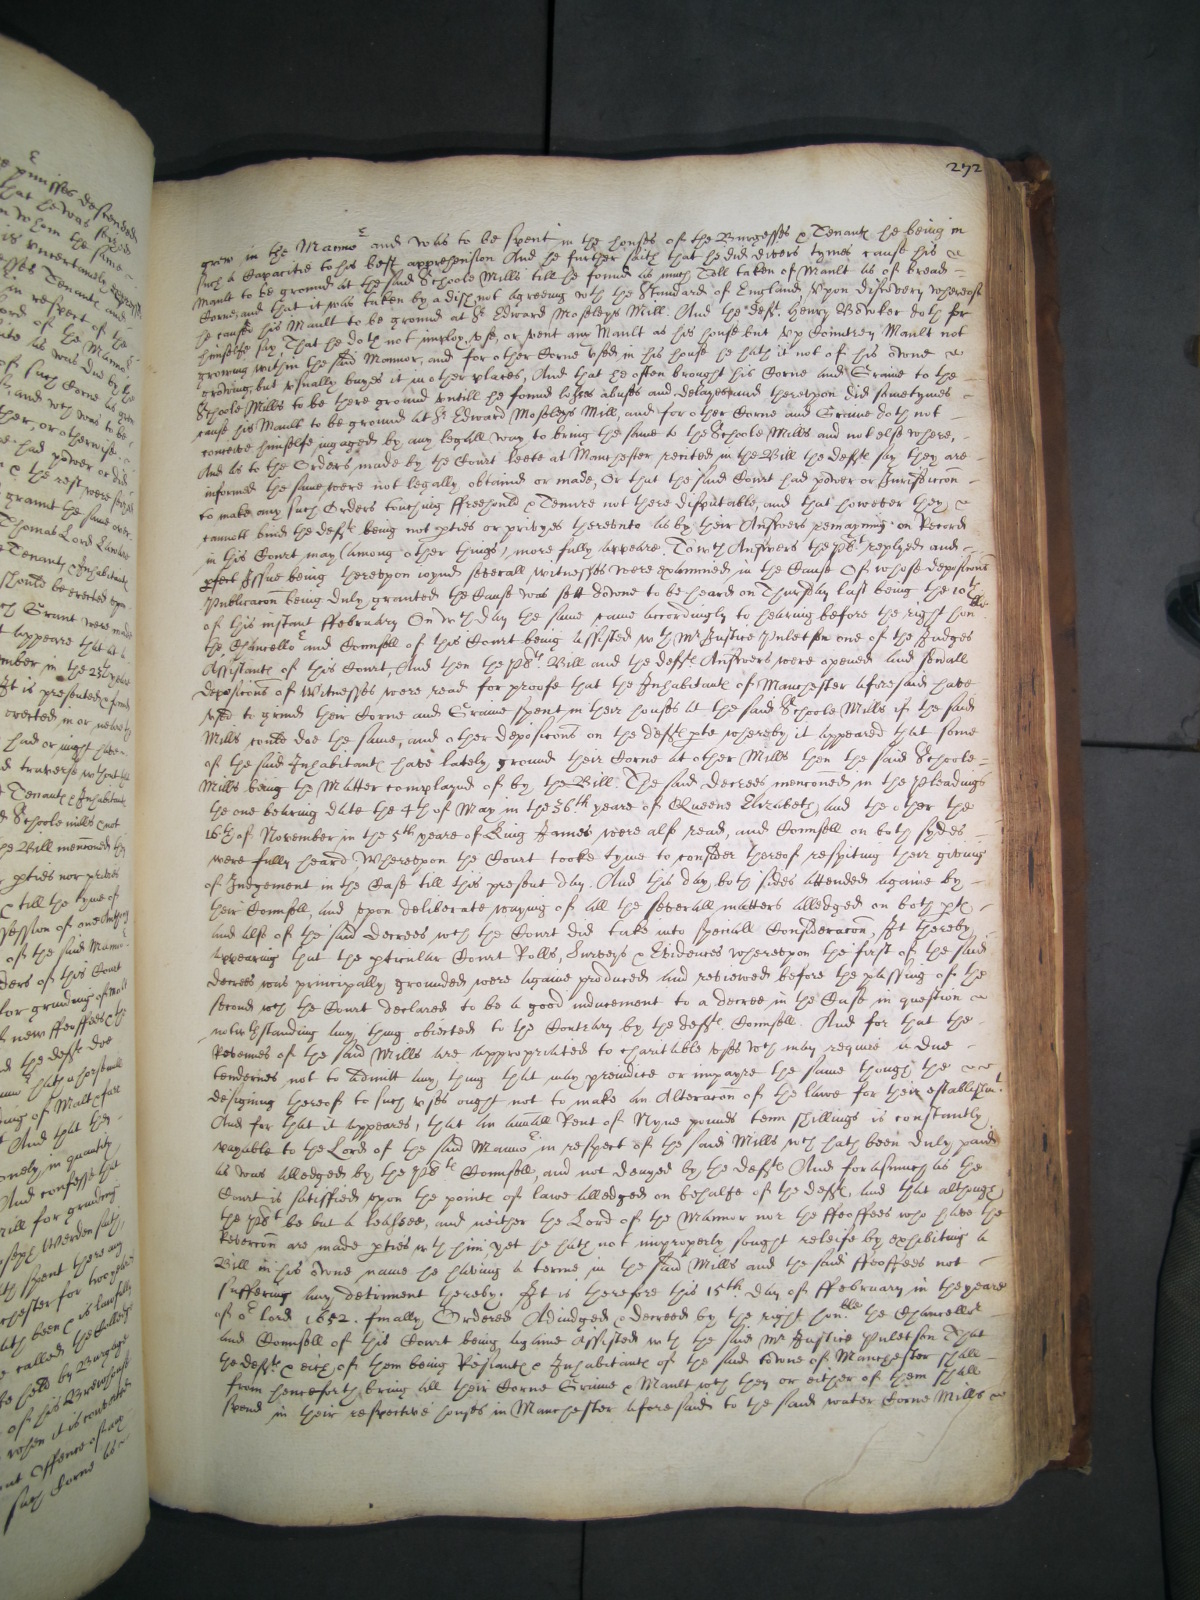 272
grow in the Manno:r and was to be spent in the houses of the Burgesses & Tenant he being in
such a Capacitie to his best apprehension And he further saith that he did divers tymes cause his
Mault to be ground at the said Schoole Mills till he found as much Toll taken of Mault as of bread
Corne, and that it was taken by a dish not agreeing with the Standard of England Upon discovery whereof
he caused his Mault to be ground at Sr Edward Moseleys Mill. And the deft. Henry Bowker doth for
himselfe say That he doth not imploy, use, or vent any Mault as his house but up Countrey Mault not
growing within the said Mannor, and for other Corne used in his house he hath it not of his owne
growing, but usually buyes it in other places, And that he often brought his Corne and Graine to the
Schoole Mills to be there ground untill he found losses abuses and delayes and thereupon did sometymes
cause his Mault to be ground at Sr Edward Moseleys Mill, and for other Corne and Graine doth not
conceive himselfe ingaged by any legall way to bring the same to the Schoole Mills and not elsewhere,
And as to the Orders made by the Court Leete at Manchester recited in the Bill the defts say they are
informed the same were not legally obtaind or made, Or that the said Court had power or Jurisdiccon
to make any such Orders touching ffreehould & Tenure not there disputable, and that however they
cannott bind the defts being not pties or privyes thereunto as by their Answers remayning on Record
in this Court may (among other things) more fully appeare. To wch Answers the plt replyed and
pfect Issue being thereupon ioynd severall witnesses were examined in the Cause Of whose deposicons
Publicacon being duly granted the Cause was sett downe to be heard on Thursday last being the 10th
of this instant ffebruary On wch day the same came accordingly to hearing before the right honble
the Chancello:r and Counsell of this Court being assisted with Mr Justice Puleston one of the Judges
Assistant of this Court, And then the plts Bill and the defts Answers were opened and severall
deposicons of Witnesses were read for proofe that the Inhabitant of Manchester aforesaid have
used to grind their Corne and Graine spent in their houses at the said Schoole Mills if the said
Mills could doe the same, and other deposicons on the defts pte whereby it appeared that some
of the said Inhabitant have lately ground their Corne at other Mills then the said Schoole
Mills being the Matter complaynd of by the Bill. The said decrees mencõned in the Pleadings
the one bearing date the 4th of May in the 36th yeare of Queene Elizabeth, and the other the
16th of November in the 5th yeare of King James were also read, and Counsell on both sydes
were fully heard Whereupon the Court tooke tyme to consider thereof respiting their giving
of Judgement in the Case till this present day. And this day both sides attended againe by
their Counsell, and upon deliberate waying of all the severall matters alledged on both pts
and also of the said decrees wch the Court did take into speciall Consideracon, It thereby
appearing that the pticular Court Rolls, Surveys & Evidences whereupon the first of the said
decrees was principally grounded were againe produced and reviewed before the passing of the
second wch the Court declared to be a good inducement to a decree in the Case in question
notwithstanding any thing obiected to the Contrary by the defts Counsell. And for that the
Revenues of the said Mills are appropriated to charitable uses wch may require a due
tendernes not to admitt any thing that may preiudice or impayre the same though the
designing thereof to such uses ought not to make an Alteracon of the lawe for their establishmt.
And for that it appeares, that an annuall Rent of Nyne pounds tenn shillings is constantly
payable to the Lord of the said Manno:r in respect of the said Mills wch hath been duly paid
as was alledged by the plts Counsell, and not denyed by the defts And forasmuch as the
Court is satisfied upon the point of lawe alledged on behalfe of the defts, and that although
the plt be but a leassee, and neither the Lord of the Mannor nor the ffeoffees who have the
Revercon are made pties with him, yet he hath not improperly sought releife by exhibiting a
Bill in his owne name he having a terme in the said Mills and the said ffeoffees not
suffering any detriment thereby. It is therefore this 15th day of ffebruary in the yeare
of o:r lord 1652. finally Ordered Adiudged & decreed by the right honble the Chancello:r
and Counsell of this Court being againe Assisted with the said Mr Justice Puleston That
the defts & each of them being Resiant & Inhabitant of the said towne of Manchester shall
from henceforth bring all their Corne Graine & Mault wch they or either of them shall
spend in their respective houses in Manchester aforesaid to the said water Corne Mills